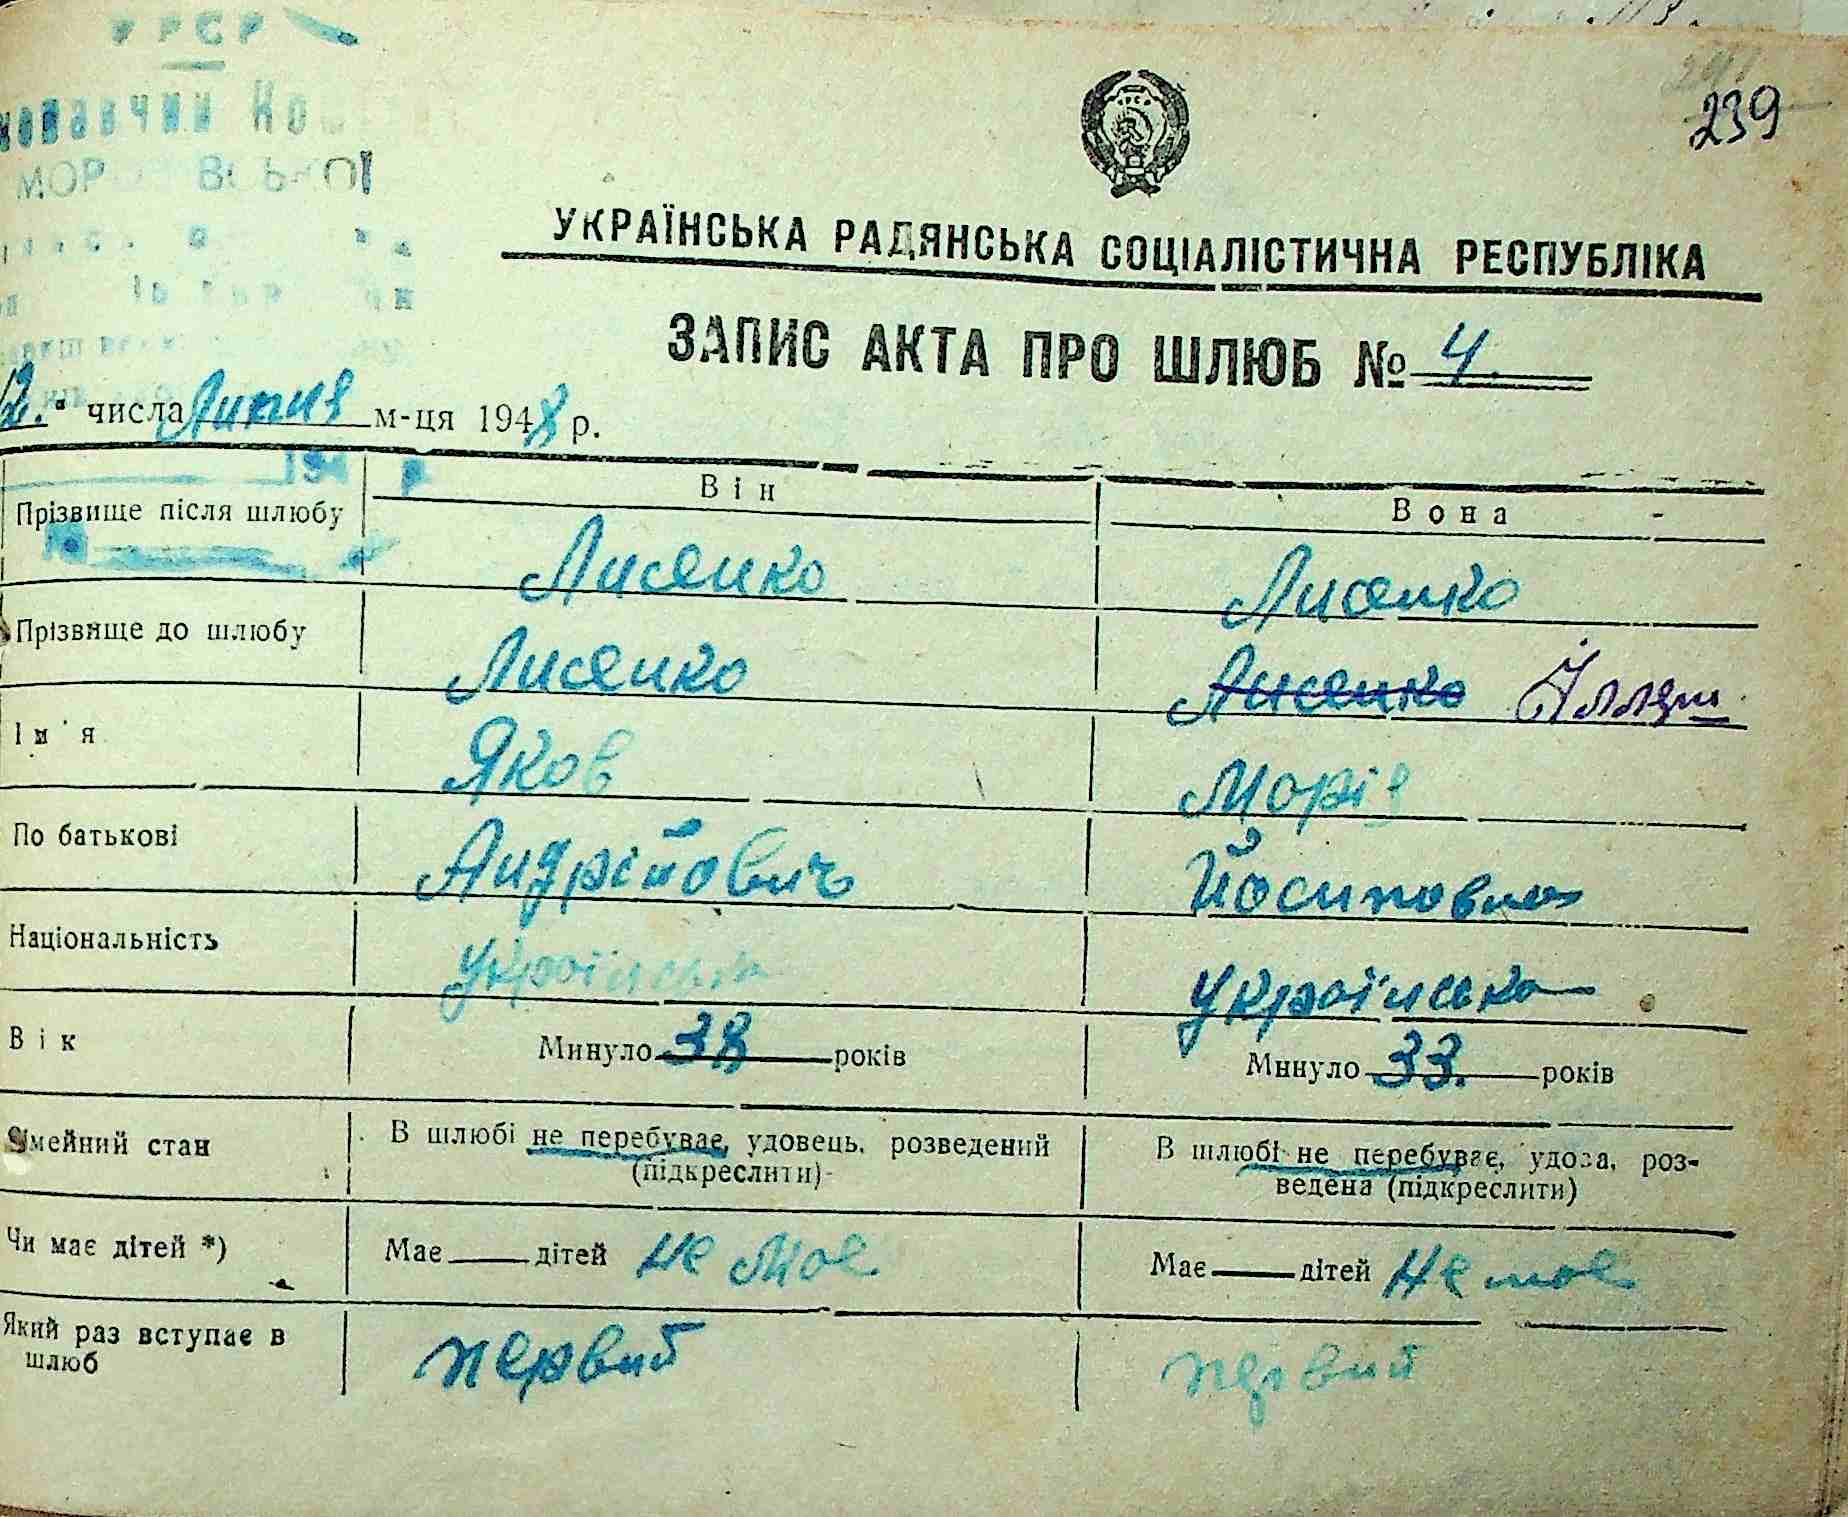 УРСР
239
УКРАЇНСЬКА РАДЯНСЬКА СОЦІАЛІСТИЧНА РЕСПУБЛІКА
ЗАПИС АКТА ПРО ШЛЮБ № 4.
2." числа Липня м-ця 1948 р.
Він Вона
Прізвище після шлюбу Лисенко Лисенко
Прізвище до шлюбу Лисенко Лисенко Ілляш
Ім'я Яков Марія
По батькові Андрійович Йосиповна
Національність українець українка
Вік Минуло 38 років Минуло 33. років
Сімейний стан В шлюбі не перебуває, удовець, розведений (підкреслити) В шлюбі не перебуває, удова, роз-
ведена (підкреслити)
Чи має дітей *) Має дітей не має Має дітей не має
Який раз вступає в
шлюб первий первий